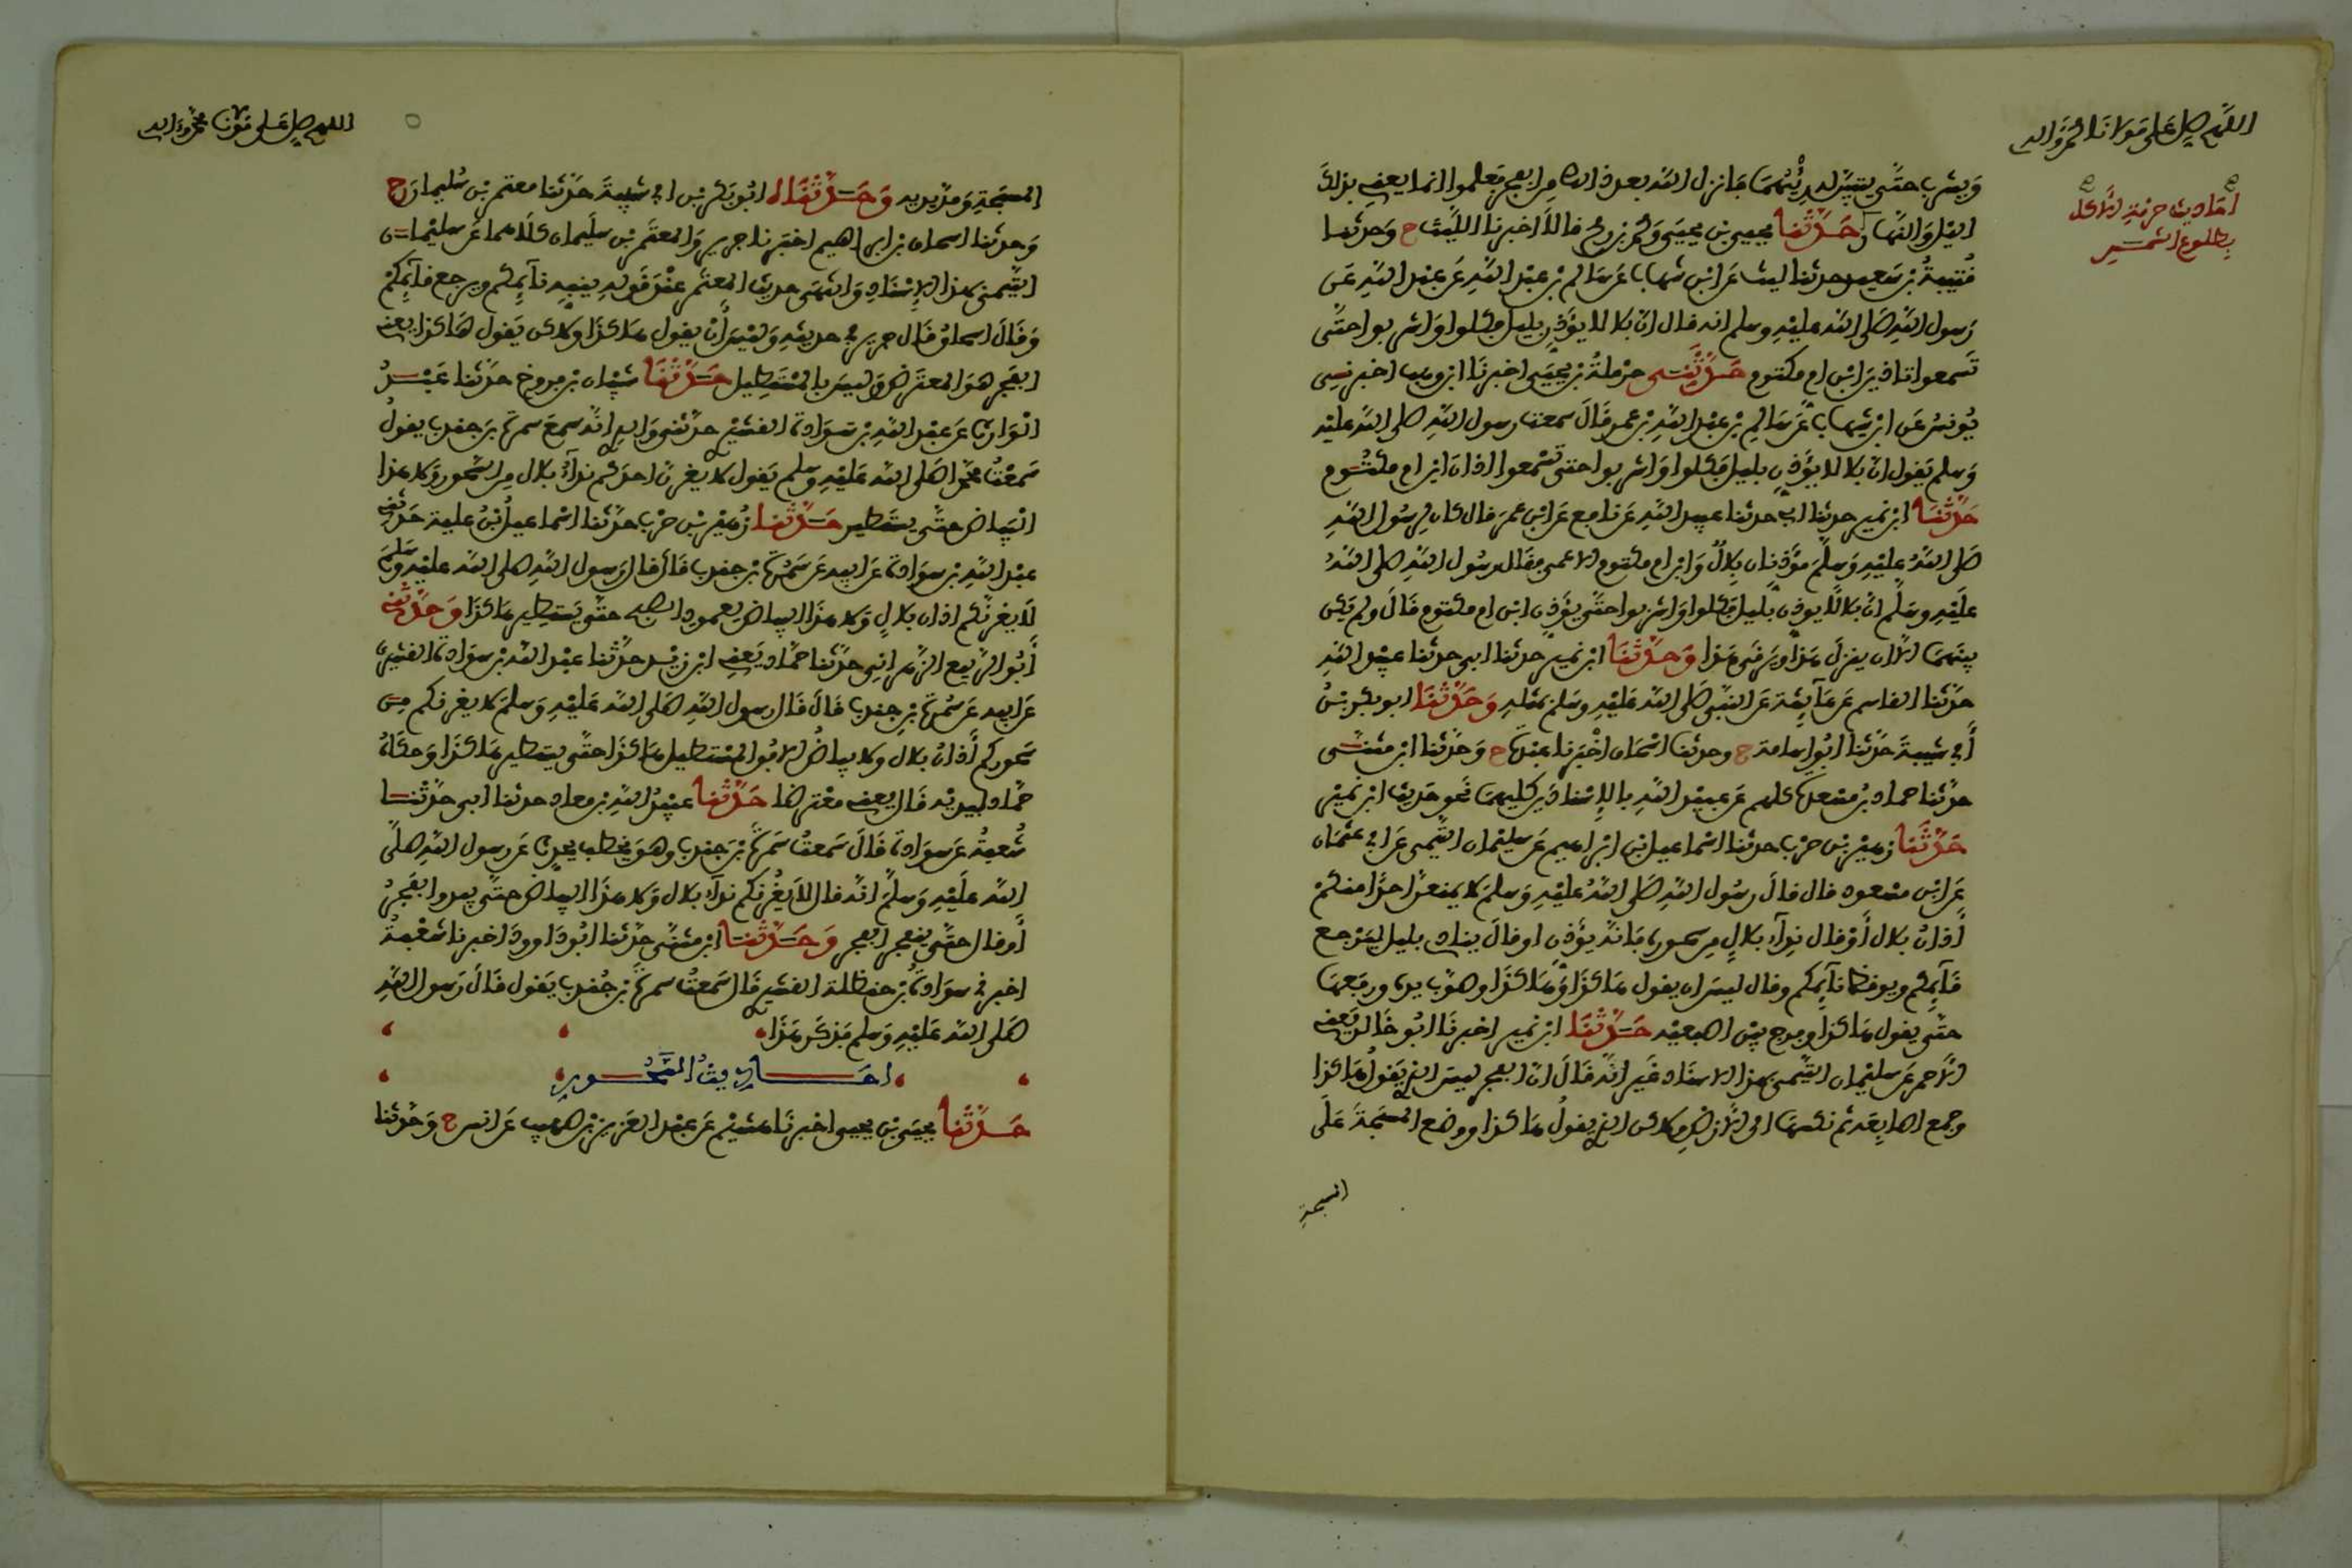 اللهم صل على مولانا محمد وآله
احاديث حرمة الأكل
بطلوع الشمس
ويشرب حتى يتبين له رئيهما فانزل الله بعد ذالك من الفجر فعلموا انما يعني بذلك
الليل والنهار حدثنا يحيى بن يحيى ومحمد بن رمح قالا اخبرنا الليث ح وحدثنا
قتيبة بن سعيد حدثنا ليث عن ابن شهاب عن سالم بن عبد الله عن عبد الله عن
رسول الله صلى الله عليه وسلم انه قال ان بلالا يؤذن بليل فكلوا واشربوا حتى
تسمعوا تاذين ابن ام مكتوم حدثني حرملة بن يحيى اخبرنا ابن وهب اخبرني
يونس عن ابن شهاب عن سالم بن عبد الله بن عمر قال سمعت رسول الله صلى الله عليه
وسلم يقول ان بلالا يؤذن بليل فكلوا واشربوا حتى تسمعوا اذان ابن ام مكتوم
حدثنا ابن نمير حدثنا ابي حدثنا عبيد الله عن نافع عن ابن عمر قال كان لرسول الله
صلى الله عليه وسلم مؤذنان بلال وابن ام مكتوم الاعمى فقال رسول الله صلى الله
عليه وسلم ان بلالا يوذن بليل فكلوا واشربوا حتى يؤذن ابن ام مكتوم قال ولم يكن
بينهما الا ان ينزل هذا ويرقى هذا وحدثنا ابن نمير حدثنا ابي حدثنا عبيد الله
حدثنا القاسم عن عائشة عن النبي صلى الله عليه وسلم بمثله وحدثنا ابو بكر بن
أبي شيبة حدثنا ابو اسامة ح وحدثنا اسحاق اخبرنا عبدة ح وحدثنا ابن مثنى
حدثنا حماد بن مسعدة كلهم عن عبيد الله بالإسنادين كليهما نحو حديث ابن نمير
حدثنا زهير بن حرب حدثنا اسماعيل بن ابراهيم عن سليمان التيمي عن ابي عثمان
عن ابن مسعود قال قال رسول الله صلى الله عليه وسلم لا يمنعن احدا منكم
أذان بلال أو قال نداء بلال من سحوره فانه يؤذن او قال ينادي بليل ليرجع
قائمكم ويوقظ نائمكم وقال ليس ان يقول هاكذا وهاكذا وصوب يده ورفعها
حتى يقول هاكذا وفرج بين اصبعيه حدثنا ابن نمير اخبرنا ابو خالد يعني
الأحمر عن سليمان التيمي بهذا الاسناد غير انه قال ان الفجر ليس الذي يقول هاكذا
وجمع اصابعه ثم نكسها الى الأرض ولاكن الذي يقول هاكذا ووضع المسبحة على
المسبحة
اللهم صل على مولانا محمد وآله
المسبحة ومد يديه وحدثنا ابو بكر بن ابي شيبة حدثنا معتمر بن سليمان ح
وحدثنا اسحاق بن ابراهيم اخبرنا جرير والمعتمر بن سليمان كلاهما عن سليمان
التيمي بهذا الإسناد وانتهى حديث المعتمر عند قوله ينبه نائمكم ويرجع قائمكم
وقال اسحاق قال جرير في حديثه وليس أن يقول هاكذا ولاكن يقول هاكذا يعني
الفجر هو المعترض وليس بالمستطيل حدثنا شيبان بن فروخ حدثنا عبد
الوارث عن عبد الله بن سوادة القشيري حدثني والدي انه سمع سمرة بن جندب يقول
سمعت محمدا صلى الله عليه وسلم يقول لا يغرن احدكم نداء بلال من السحور ولا هذا
البياض حتى يستطير حدثنا زهير بن حرب حدثنا اسماعيل ابن علية حدثني
عبد الله بن سوادة عن ابيه عن سمرة بن جندب قال قال رسول الله صلى الله عليه وسلم
لا يغرنكم اذان بلال ولا هذا البياض لعمود الصبح حتى يستطير هاكذا وحدثني
أبو الربيع الزهراني حدثنا حماد يعني ابن زيد حدثنا عبد الله بن سوادة القشيري
عن ابيه عن سمرة بن جندب قال قال رسول الله صلى الله عليه وسلم لا يغرنكم من
سحوركم أذان بلال ولا بياض الافق المستطيل هاكذا حتى يستطير هاكذا وحكاه
حماد بيديه قال يعني معترضا حدثنا عبيد الله بن معاذ حدثنا ابي حدثنا
شعبة عن سوادة قال سمعت سمرة بن جندب وهو يخطب يحدث عن رسول الله صلى
الله عليه وسلم انه قال لا يغرنكم نداء بلال ولا هذا البياض حتى يبدوا الفجر
أو قال حتى ينفجر الفجر وحدثنا ابن مثنى حدثنا ابو داوود اخبرنا شعبة
اخبرني سوادة بن حنظلة القشيري قال سمعت سمرة بن جندب يقول قال رسول الله
صلى الله عليه وسلم فذكر هذا
احاديث السحور
حدثنا يحيى بن يحيى اخبرنا هشيم عن عبد العزيز بن صهيب عن انس ح وحدثنا